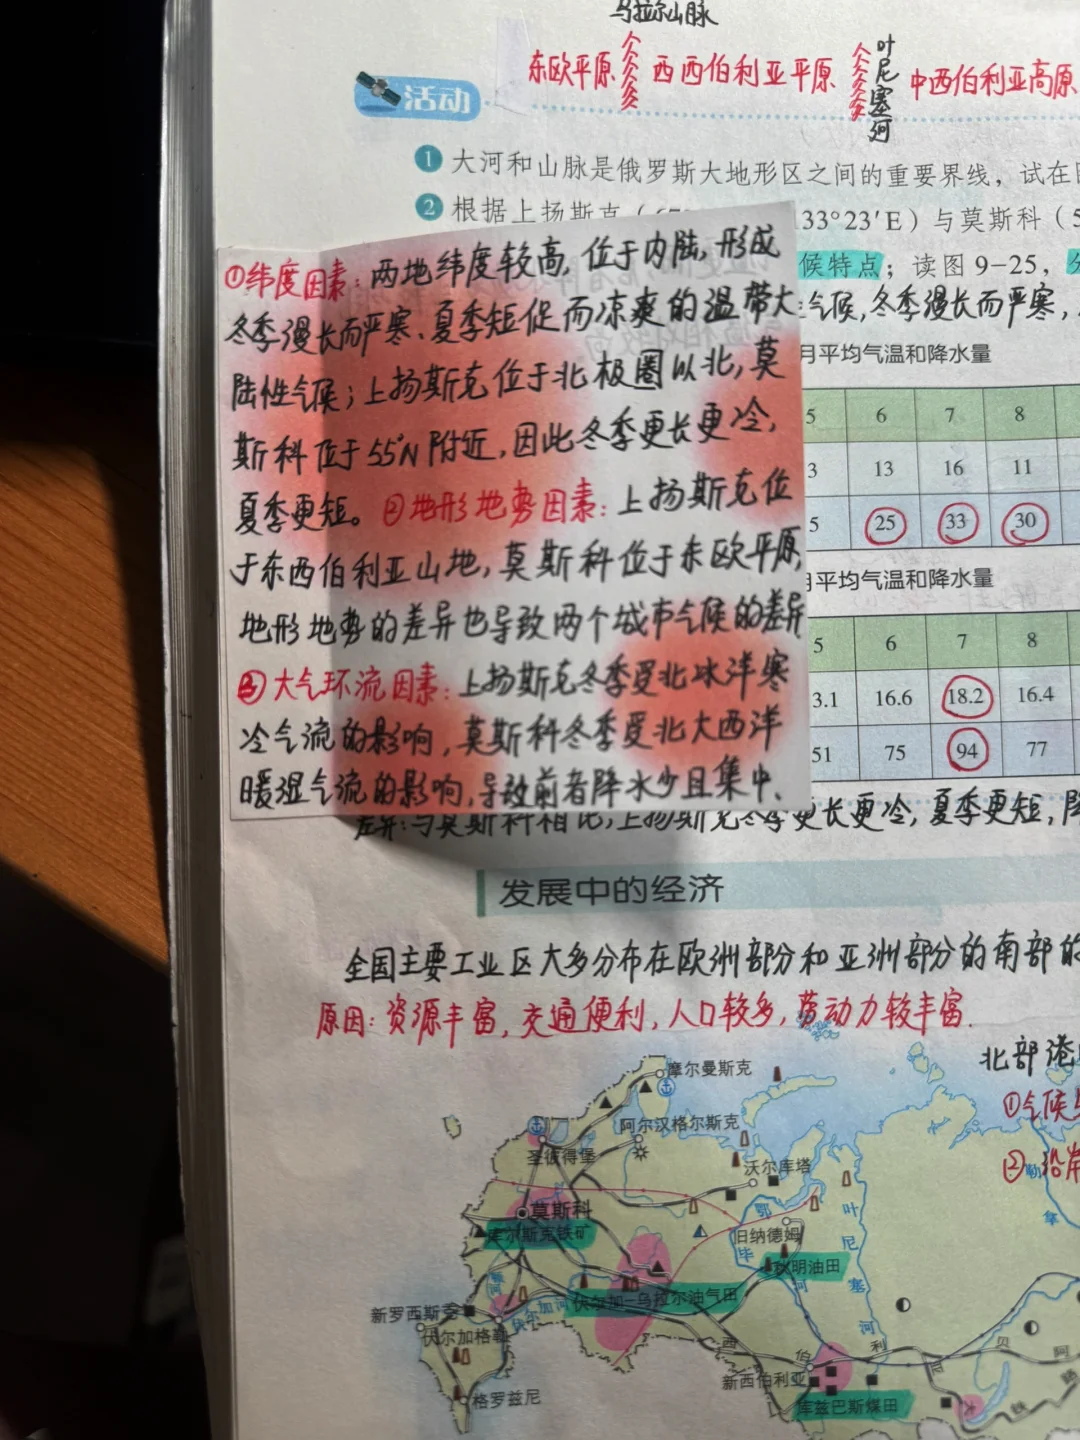 马拉尔山脉
东欧平原 西西伯利亚平原 叶尼塞河 中西伯利亚高原
活动
1 大河和山脉是俄罗斯大地形区之间的重要界线，试在
2 根据上扬斯克（ 33°23′E）与莫斯科（5
候特点；读图9-25，
气候,冬季漫长而严寒,
月平均气温和降水量
5 6 7 8
3 13 16 11
5 25 33 30
月平均气温和降水量
5 6 7 8
3.1 16.6 18.2 16.4
51 75 94 77
①纬度因素:两地纬度较高,位于内陆,形成
冬季漫长而严寒、夏季短促而凉爽的温带大
陆性气候;上扬斯克位于北极圈以北,莫
斯科位于55°N附近,因此冬季更长更冷,
夏季更短。②地形地势因素:上扬斯克位
于东西伯利亚山地,莫斯科位于东欧平原,
地形地势的差异也导致两个城市气候的差异
③大气环流因素:上扬斯克冬季受北冰洋寒
冷气流的影响,莫斯科冬季受北大西洋
暖湿气流的影响,导致前者降水少且集中、
差异:与莫斯科相比,上扬斯克冬季更长更冷,夏季更短,降
发展中的经济
全国主要工业区大多分布在欧洲部分和亚洲部分的南部的
原因:资源丰富,交通便利,人口较多,劳动力较丰富.
北部港
①气候
②沿岸
摩尔曼斯克
阿尔汉格尔斯克
圣彼得堡
沃尔库塔
莫斯科
库尔斯克铁矿
旧纳德姆
鄂毕河
叶尼塞河
勒拿
秋明油田
伏尔加-乌拉尔油气田
伏尔加河
顿河
新罗西斯克
伏尔加格勒
格罗兹尼
新西伯利亚
库兹巴斯煤田
西伯利亚大铁路
贝阿